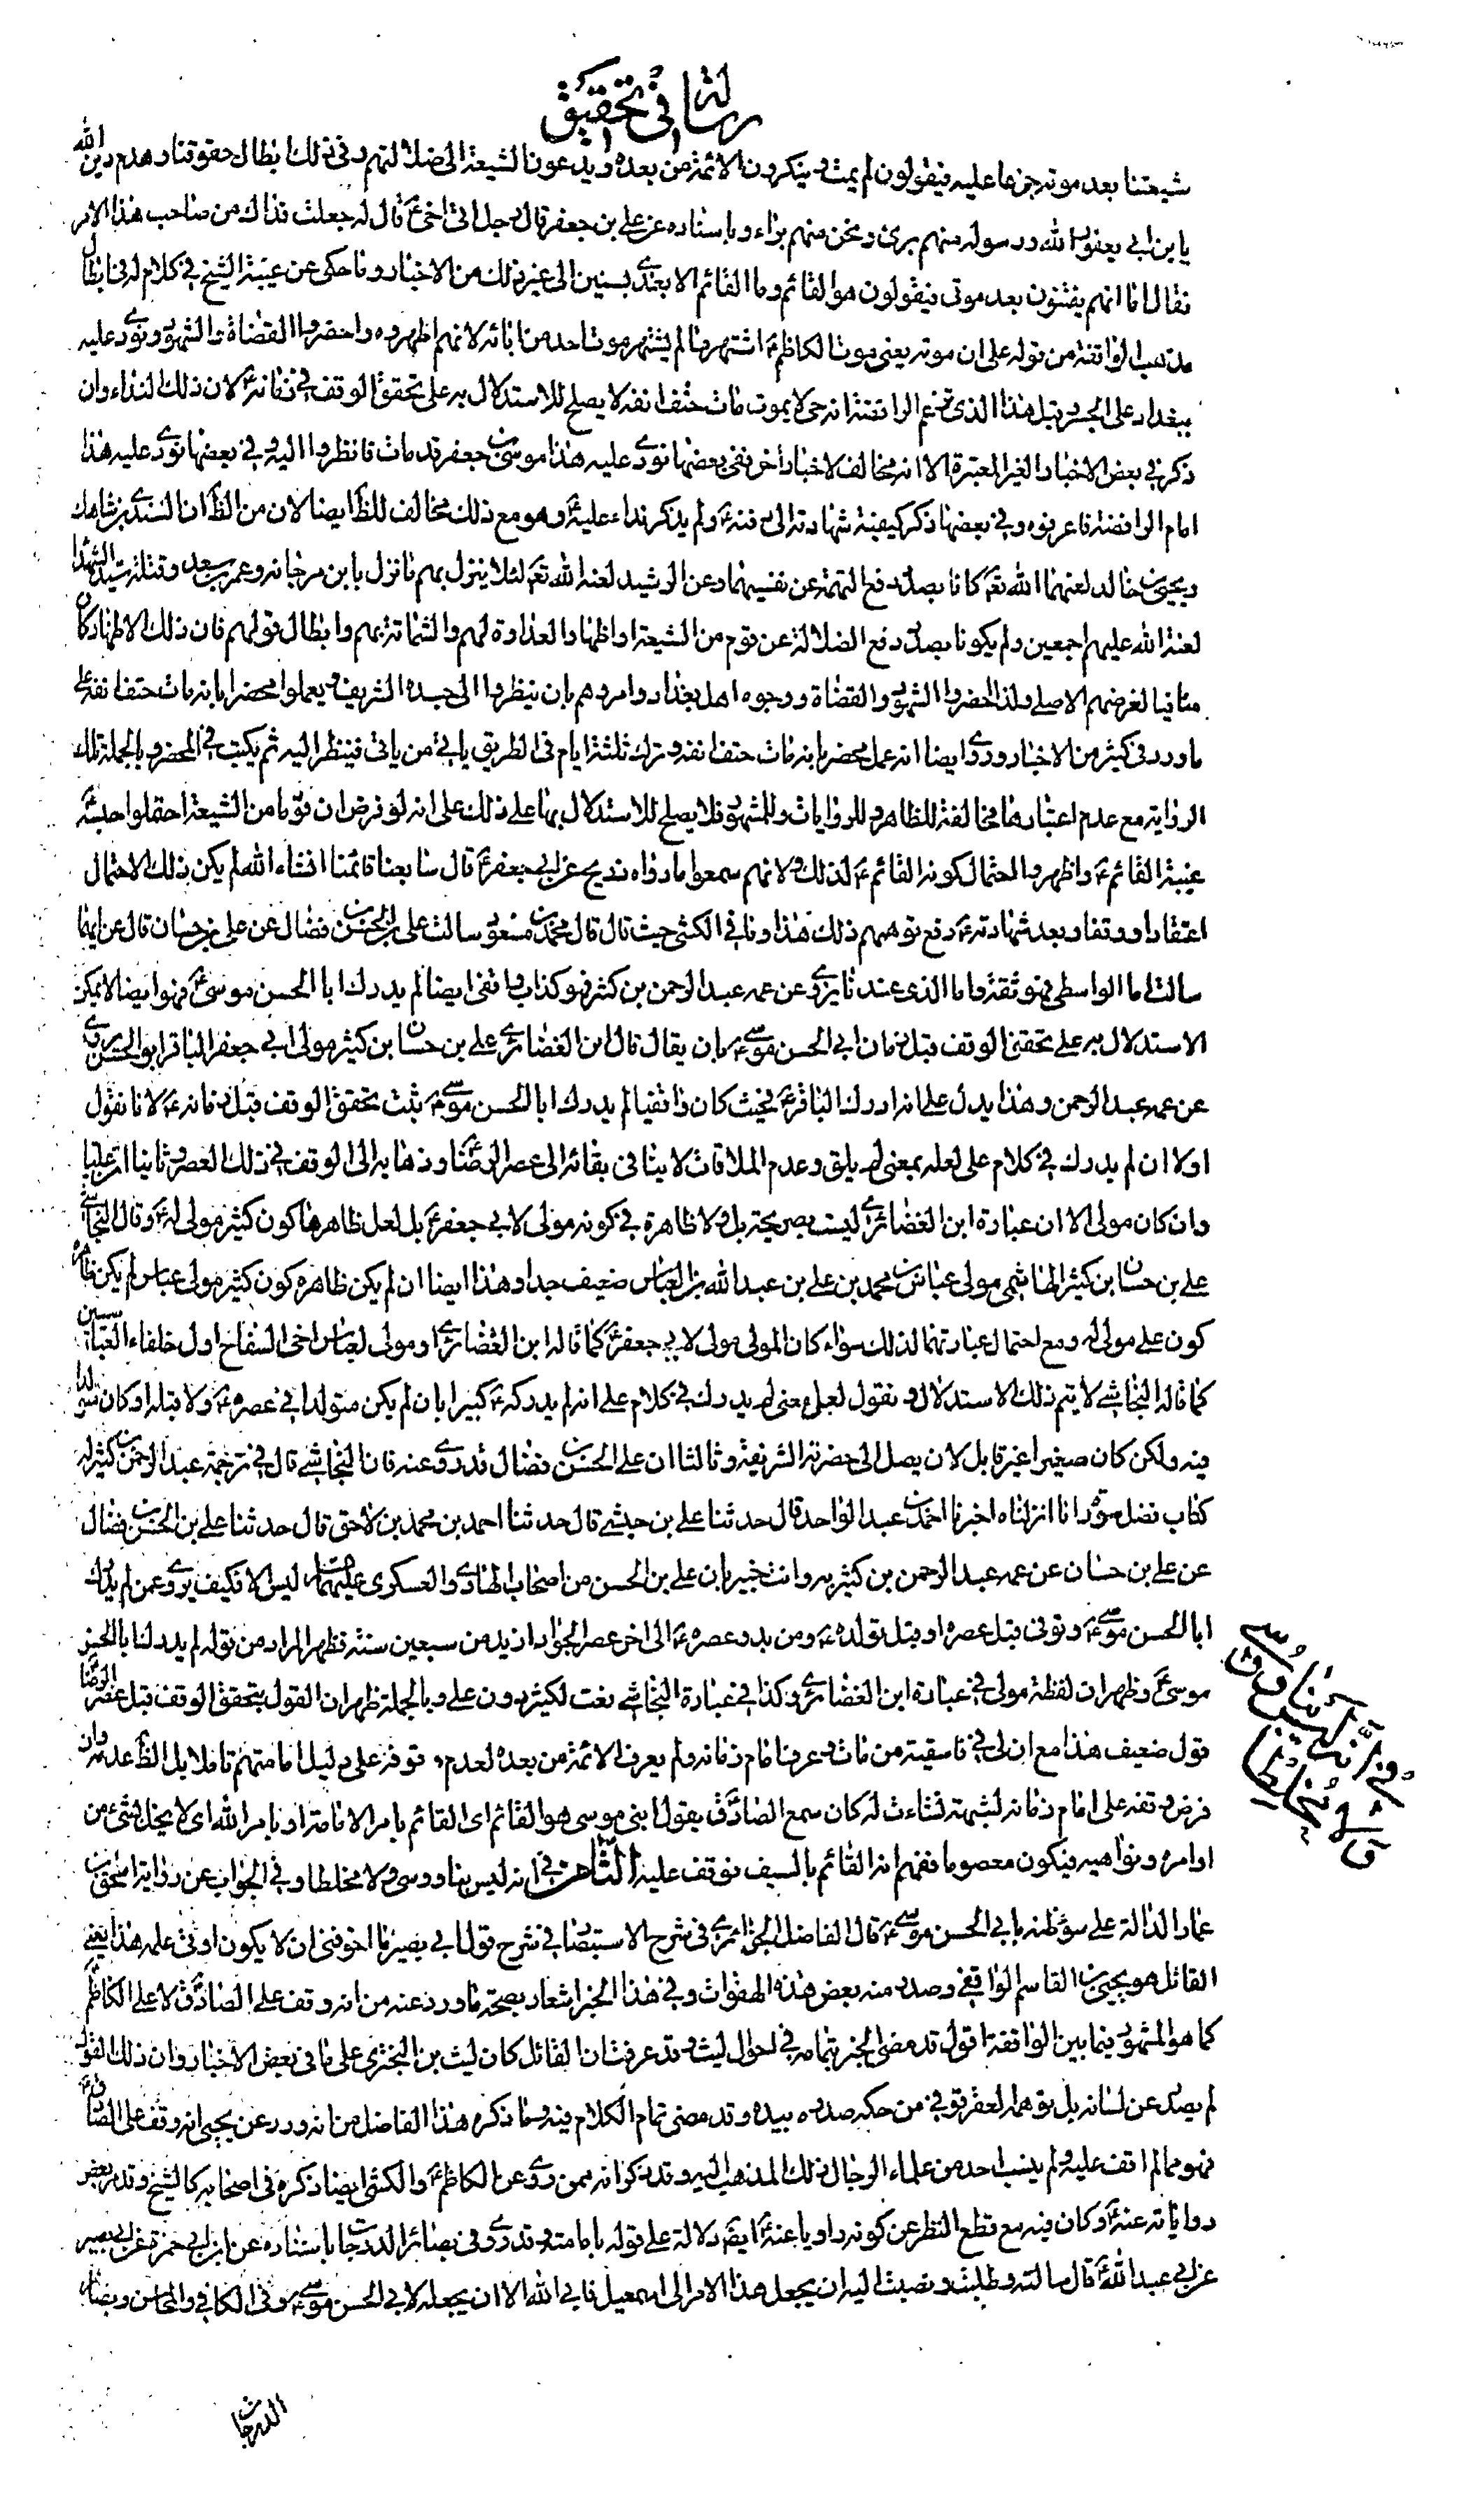 رسالة في تحقيق
شيعتنا بعد موته جزعا عليه فيقولون لم يمت وينكرون الائمة من بعده ويدعون الشيعة الى ضلالتهم وفي ذلك ابطال حقوقنا وهدم دين الله
يا بن ابي يعفور الله ورسوله منهم برئ ونحن منهم براء وباسناده عن علي بن جعفر قال رجل اتى اخي ع قال له جعلت فداك من صاحب هذا الامر
فقال اما انهم يفتنون بعد موتي فيقولون هو القائم وما القائم الا بعدي بسنين الى غير ذلك من الاخبار وما حكى عن غيبة الشيخ في كلام له في ابطال
مذهب الواقفة من قوله على ان موته يعني موت الكاظم ع اشتهر ما لم يشتهر موت احد من ابائه لانهم اظهروه واحضروا القضاة والشهود ونودي عليه
ببغداد على الجسر وقيل هذا الذي تزعم الرافضة انه حي لا يموت مات حتف انفه لا يصلح للاستدلال به على تحقق الوقف في زمانه ع لان ذلك النداء وان
ذكر في بعض الاخبار الغير المعتبرة الا انه مخالف لاخبار اخر ففي بعضها نودي عليه هذا موسى بن جعفر قد مات فانظروا اليه وفي بعضها نودي عليه هذا
امام الرافضة فاعرفوه وفي بعضها ذكر كيفية شهادته الى دفنه ع ولم يذكر نداء عليه ع وهو مع ذلك مخالف للظ ايضا لان من الظ ان السندي بن شاهك
ويحيى بن خالد لعنهما الله تع كانا بصدد دفع التهمة عن نفسيهما وعن الرشيد لعنه الله تع لئلا ينزل بهم ما نزل بابن مرجانه وعمر بن سعد وقتلة سيد الشهداء
لعنة الله عليهم اجمعين ولم يكونا بصدد دفع الضلالة عن قوم من الشيعة او اظهار العداوة لهم والشماتة بهم وابطال قولهم فان ذلك الاظهار كان
منافيا لغرضهم الاصلي ولذا احضروا الشهود والقضاة ووجوه اهل بغداد وامروهم بان ينظروا الى جسده الشريف ويعملوا محضرا بانه مات حتف انفه على
ما ورد في كثير من الاخبار وروى ايضا انه عمل محضر بانه مات حتف انفه وترك ثلثة ايام في الطريق ياتي من ياتي فينظر اليه ثم يكتب في المحضر وبالجملة تلك
الرواية مع عدم اعتبارها مخالفة للظاهر وللروايات وللمشهور فلا يصلح للاستدلال بها على ذلك على انه لو فرض ان قوما من الشيعة احتملوا حبسه
غيبة القائم ع واظهروا احتمال كونه القائم ع لذلك ولانهم سمعوا ما رواه ذريح عن ابي جعفر ع قال سابعنا قائمنا انشاء الله لم يكن ذلك الاحتمال
اعتقادا ووقفا وبعد شهادته ع دفع توهمهم ذلك هذا وما في الكشي حيث قال قال محمد بن مسعود سالت علي بن الحسن بن فضال عن علي بن حسان قال عن ايهما
سالت اما الواسطي فهو ثقة واما الذي عندنا يروى عن عمه عبد الرحمن بن كثير فهو كذاب واقفي ايضا لم يدرك ابا الحسن موسى ع فهو ايضا لا يمكن
الاستدلال به على تحقق الوقف قبل زمان ابي الحسن موسى ع بان يقال قال ابن الغضائري علي بن حسان بن كثير مولى ابي جعفر الباقر ابو الحسن يروى
عن عمه عبد الرحمن وهذا يدل على انه ادرك الباقر ع فحيث كان واقفيا لم يدرك ابا الحسن موسى ع يثبت تحقق الوقف قبل زمانه ع لانا نقول
اولا ان لم يدرك في كلام علي لعله بمعنى لم يلق وعدم الملاقات لا ينافي بقائه الى عصر الرضا ع وذهابه الى الوقف في ذلك العصر وثانيا ان عليا
وان كان مولى الا ان عبارة ابن الغضائري ليست بصريحة بل ولا ظاهرة في كونه مولى لابي جعفر ع بل لعل ظاهرها كون كثير مولى له ع وقال النجاشي
علي بن حسان بن كثير الهاشمي مولى عباس بن محمد بن علي بن عبد الله بن العباس ضعيف جدا وهذا ايضا ان لم يكن ظاهره كون كثير مولى عباس لم يكن ظاهره
كون علي مولى له ومع احتمال عبارتهما لذلك سواء كان المولى مولى لابي جعفر ع كما قاله ابن الغضائري او مولى لعباس اخي السفاح اول خلفاء العباسيين
كما قاله النجاشي لا يتم ذلك الاستدلال ونقول لعل معنى لم يدرك في كلام علي انه لم يدركه ع كبيرا بان لم يكن متولدا في عصره ع ولا قبله او كان متولدا
فيه ولكن كان صغيرا غير قابل لان يصل الى حضرته الشريفة وثالثا ان علي بن الحسن بن فضال قد روى عنه فان النجاشي قال في ترجمة عبد الرحمن بن كثير له
كتاب فضل سورة انا انزلناه اخبرنا احمد بن عبد الواحد قال حدثنا علي بن حبشي قال حدثنا احمد بن محمد بن لاحق قال حدثنا علي بن الحسن بن فضال
عن علي بن حسان عن عمه عبد الرحمن بن كثير به وانت خبير بان علي بن الحسن من اصحاب الهادي والعسكري عليهما السلام ليس الا فكيف يروى عمن لم يدرك
ابا الحسن موسى ع وتوفى قبل عصره او قبل تولده ع ومن بدو عصره ع الى اخر عصر الجواد ازيد من سبعين سنة فظهر المراد من قوله لم يدرك ابا الحسن
موسى ع وظهر ان لفظة مولى في عبارة ابن الغضائري وكذا في عبارة النجاشي نعت لكثير دون علي وبالجملة ظهر ان القول بتحقق الوقف قبل عصر الرضا
قول ضعيف هذا مع ان لي في فاسقية من مات وعرف امام زمانه ولم يعرف الائمة من بعده لعدم وقوفه على دليل امامتهم تاملا بل الظ عدمه وان
فرض وقفه على امام زمانه لشبهة نشات له كان سمع الصادق يقول ابني موسى هو القائم اى القائم بامر الامامة او بامر الله اى لا يخل بشئ من
اوامره ونواهيه فيكون معصوما ففهم انه القائم بالسيف فوقف عليه الثامن في انه ليس بناووسى ولا مخلطا وفي الجواب عن رواية اسحق بن
عمار الدالة على سوء ظنه بابي الحسن موسى ع قال الفاضل الجزائري في شرح الاستبصار في شرح قول ابي بصير ما اخوفني ان لا يكون اوتى علمه هذا يعني
القائل هو يحيى بن القاسم الواقفي وصدر منه بعض هذه الهفوات وفي هذا الخبر اشعار بصحة ما ورد عنه من انه وقف على الصادق لا على الكاظم
كما هو المشهور فيما بين الواقفة اقول قد مضى الخبر بتمامه في احوال ليث وقد عرفت ان القائل كان ليث بن البختري على ما في بعض الاخبار وان ذلك القول
لم يصدر عن لسانه بل توهم العقرقوفي من حكه صدره بيده وقد مضى تمام الكلام فيه وما ذكره هذا الفاضل من انه ورد عن يحيى انه وقف على الصادق ع
فهو مما لم اقف عليه ولم ينسب احد من علماء الرجال ذلك المذهب اليه وقد ذكروا انه ممن روى عن الكاظم ع والكشي ايضا ذكره في اصحابه كالشيخ وقد مر بعض
رواياته عنه ع وكان فيه مع قطع النظر عن كونه راويا عنه ع ايض دلالة على قوله بامامته وقد روى في بصائر الدرجات باسناده عن ابن ابي حمزة عن ابي بصير
عن ابي عبد الله ع قال سالته وطلبت وقضيت اليه ان يجعل هذا الامر الى اسمعيل فابى الله الا ان يجعله لابي الحسن موسى ع وفي الكافي والمحاسن وبصائر
الدرجات